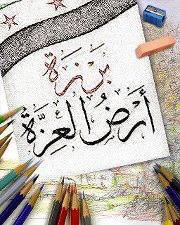 برزة
أرضُ العِزَّة